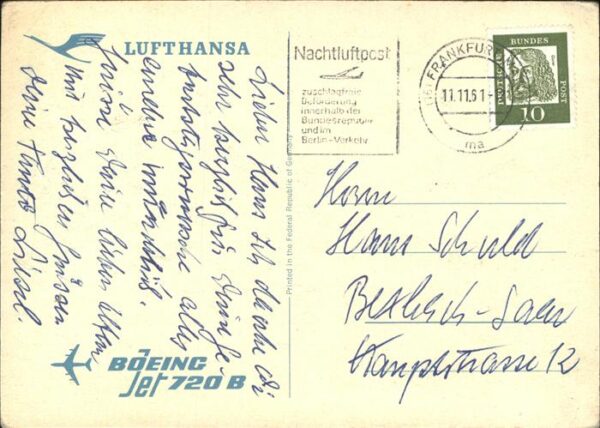 LUFTHANSA
Lieber Hans ich danke Dir
sehr herzlich für Deine Ge-
burtstagswünsche alles
andere mündlich.
Grüsse Deine lieben Eltern
Mit herzlichen Grüssen
Deine Tante Liesel.
BOEING
Jet 720 B
Printed in the Federal Republic of Germany
Nachtluftpost
zuschlagfreie
Beförderung
innerhalb der
Bundesrepublik
und im
Berlin-Verkehr
FRANKFURT
11.11.61
DEUTSCHE
BUNDES
POST
10
Herrn
Hans Schuld
Hauptstrasse 12